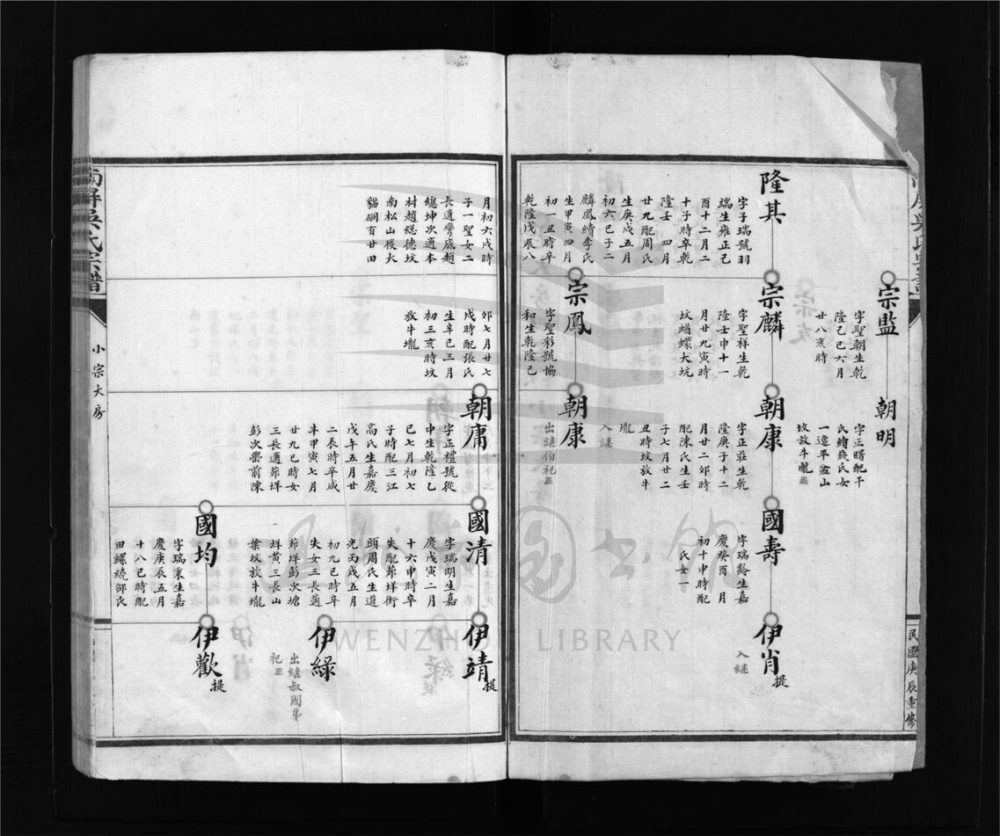 宗監
字聖朝生乾
隆己巳六月
廿八亥時
朝明
字正曙配干
氏續錢氏女
一適平盜山
坟放牛壠
隆其
字子瑞號羽
瑞生雍正己
酉十二月二
十子時卒乾
隆壬 四月
廿九配周氏
生庚戌五月
初六巳子二
麟鳳續李氏
生甲寅四月
初一丑時卒
乾隆戊辰八
宗麟
字聖祥生乾
隆壬申十一
月廿九寅時
坟蝤螺大坑
朝康
字正莊生乾
隆庚子十二
月廿二卯時
配陳氏生壬
子七月廿二
丑時坟放牛
壠
入繼
國壽
字瑞齡生嘉
慶癸酉 月
初十申時配
氏女一
伊肖
入繼
提
宗鳳
字聖彩號協
和生乾隆己
朝康
出繼伯祀
月初六戌時
子一聖女二
長適學底趙
總坤次適本
村趙總德坟
南松山後大
貓硐百廿田
卯七月廿七
戌時配張氏
生辛巳三月
初三亥時坟
放牛壠
朝庸
字正禮號從
中生乾隆乙
巳七月初七
子時配三江
高氏生嘉慶
戊午五月廿
二辰時卒咸
丰甲寅七月
廿九巳時女
三長適茆垟
彭次嶴前陳
國清
字瑞明生嘉
慶戊寅二月
十六申時卒
失配茆垟街
頭周氏生道
光丙戌五月
初九巳時卒
失女三長適
茆垟彭次塘
垟黃三長山
葉坟放牛壠
國均
字瑞秉生嘉
慶庚辰五月
十八巳時配
田螺繞邵氏
伊靖
提
伊綠
出繼叔國弟
祀
伊歡
提
南屏吳氏宗譜
小宗大房
民國庚辰重修
WENZHOU LIBRARY